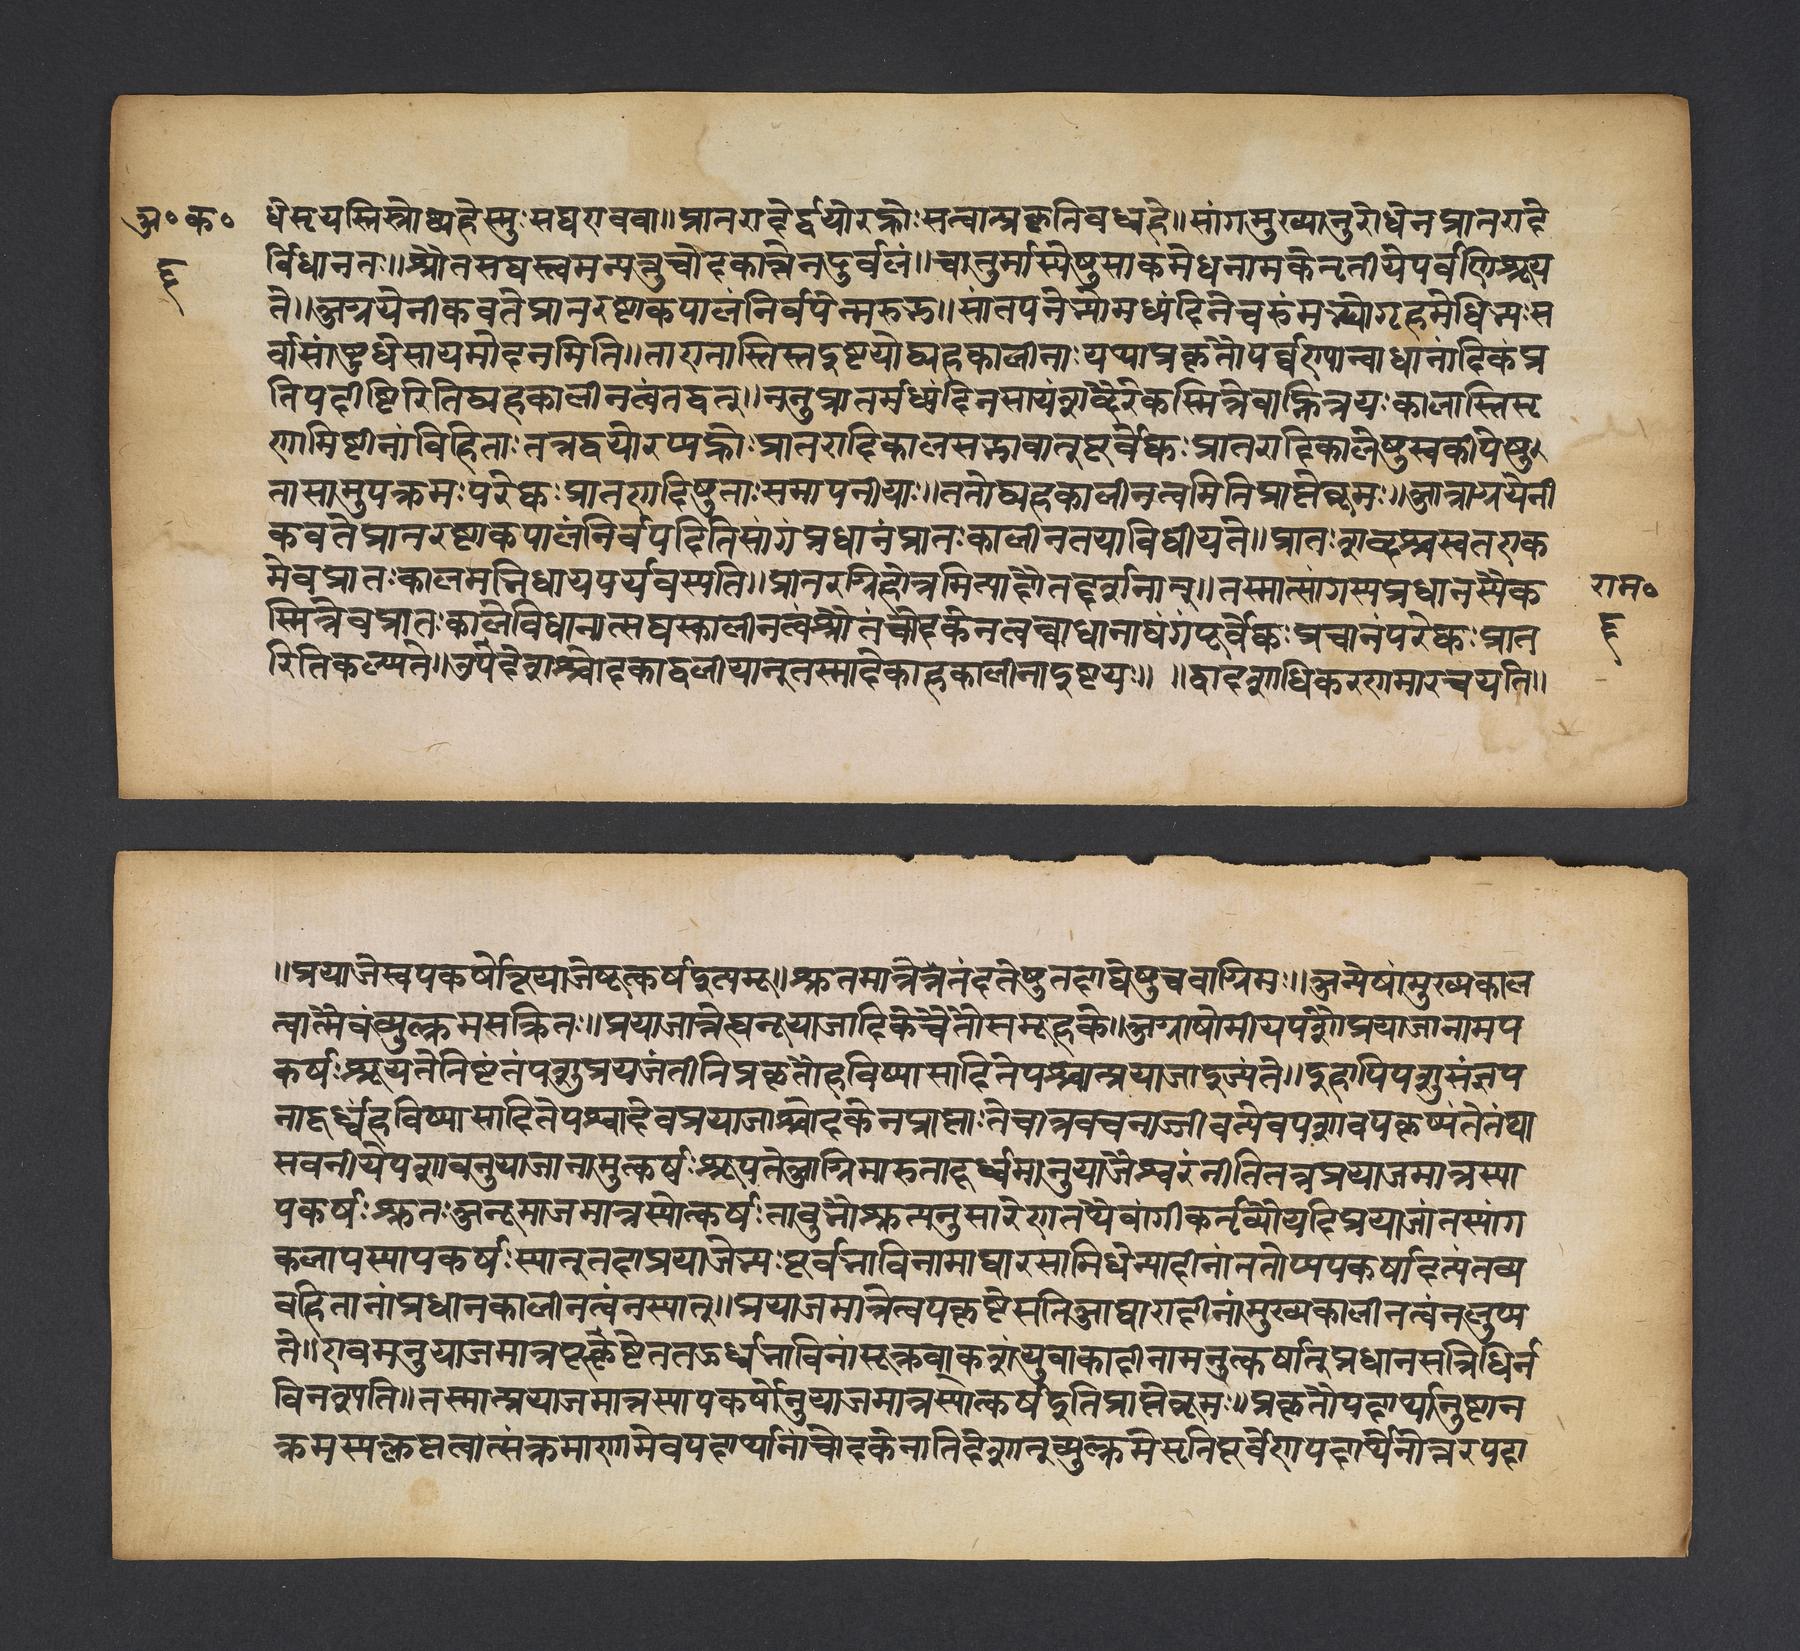 अ॰क॰
६
धेसृयस्तिस्रोद्यहेस्युःसद्यएववा॥प्रातरादेर्द्वयोरह्नोःसत्वात्प्रकृतिवध्यहे॥सांगमुख्यानुरोधेनप्रातरादे
र्विधानतः॥श्रौतसद्यस्त्वमन्यत्तुचोदकात्तेनदुर्बलं॥चातुर्मास्येषुसाकमेधनामकेतृतीयेपर्वणिश्रूय
ते॥अग्नयेनीकवतेप्रातरष्टाकपालंनिर्वपेन्मरुद्भ॥सांतपनेभ्योमध्यंदिनेचरुंमरुद्भ्योगृहमेधिभ्यःस
र्वासांदुग्धेसायमोदनमिति॥ताएतास्तिस्तइष्टयोद्व्यहकालीनाःयथाप्रकृतौपर्वण्यन्वाधानादिकंप्र
तिपदीष्टिरितिद्व्यहकालीनत्वंतद्वत्॥ननुप्रातर्मध्यंदिनसायंशब्दैरेकस्मिन्नेवाह्नित्रयःकालास्तिसृ
णामिष्टीनांविहिताःतन्नद्वयोरप्यह्नोःप्रातरादिकालसद्भावात्पूर्वेद्युःप्रातरादिकालेषुस्वकीयेषु
तासामुपक्रमःपरेद्युःप्रातरादिषुताःसमापनीयाः॥ततोद्व्यहकालीनत्वमितिप्राप्तेब्रूमः॥आत्राग्नयेनी
कवतेप्रातरष्टाकपालंनिर्वपदितिसांगंप्रधानंप्रातःकालीनतयाविधीयते॥प्रातःशब्दश्चस्वतएक
मेवप्रातःकालमभिधायपर्यवस्यति॥प्रातरग्निहोत्रमित्यादौतद्दर्शनात्॥तस्मात्सांगस्यप्रधानस्यैक
स्मिन्नेवप्रातःकालेविधानात्सद्यस्कालीनत्वंश्रौतंचोदकेनत्वन्वाधानाद्यंगंपूर्वेद्युःप्रधानंपरेद्युःप्रात
रितिकल्प्यते॥उपदेशश्चोदकाद्बलीयानतस्मादेकाहकालीनाइष्टयः॥ ॥द्वादशाधिकरणमारचयति॥
राम॰
६
॥प्रयाजेस्वपकर्षोत्रियाजेषूत्कर्षइत्यमू॥श्रुतमात्रेन्नतंहतेषुतदाद्येषुचवाग्रिमः॥अन्येषांमुख्यकाल
त्वान्मैवंव्युत्क्रमसक्तितः॥प्रयाजान्तेत्वनूयाजादिकेचैतौसमूहके॥अग्नीषोमीयपशौप्रयाजानामप
कर्षःश्रूयतेतिष्ठंतंपशुप्रयजंतीतिप्रकृतौहविष्यासादितेपश्चात्प्रयाजाइज्यंते॥इहापिपशुसंज्ञप
नादूर्ध्वंहविष्यासादितेपश्चादेवप्रयाजाश्चोदकेनप्राप्ताःतेचात्रवचनाज्जीवत्येवपशावपकृष्यंतेतथा
सवनीयेपशावनुयाजानामुत्कर्षःश्रूयतेआग्निमारुतादूर्ध्वमनुयाजैश्चरंतीतितत्रप्रयाजमात्रस्या
पकर्षःश्रुतःअनूयाजमात्रस्योत्कर्षःतावुभौश्रुत्यनुसारेणतथैवांगीकर्तव्यौयदिप्रयाजांतस्यांग
कलापस्यापकर्षःस्यात्तदाप्रयाजेभ्यःपूर्वभाविनामाघारसामिधेन्यादीनांततोप्यपकर्षादत्यंतव्य
वहितानांप्रधानकालीनत्वंनस्यात्॥प्रयाजमात्रेत्वपकृष्टेसतिआघारादीनांमुख्यकालीनत्वंनलुप्य
ते॥एवमनुयाजमात्रउत्कृष्टेततऊर्ध्वभाविनांसूक्तवाकशंयुवाकादीनामनुत्कर्षात्प्रधानसन्निधिर्न
विनश्यति॥तस्मात्प्रयाजमात्रस्यापकर्षोनुयाजमात्रस्योत्कर्षइतिप्राप्तेब्रूमः॥प्रकृतौपदार्थानुष्ठान
क्रमस्यक्लृप्तत्वात्संक्रमाणामेवपदार्थानांचोदकेनातिदेशात्व्युत्क्रमेसतिपूर्वेणपदार्थेनोत्तरपदा